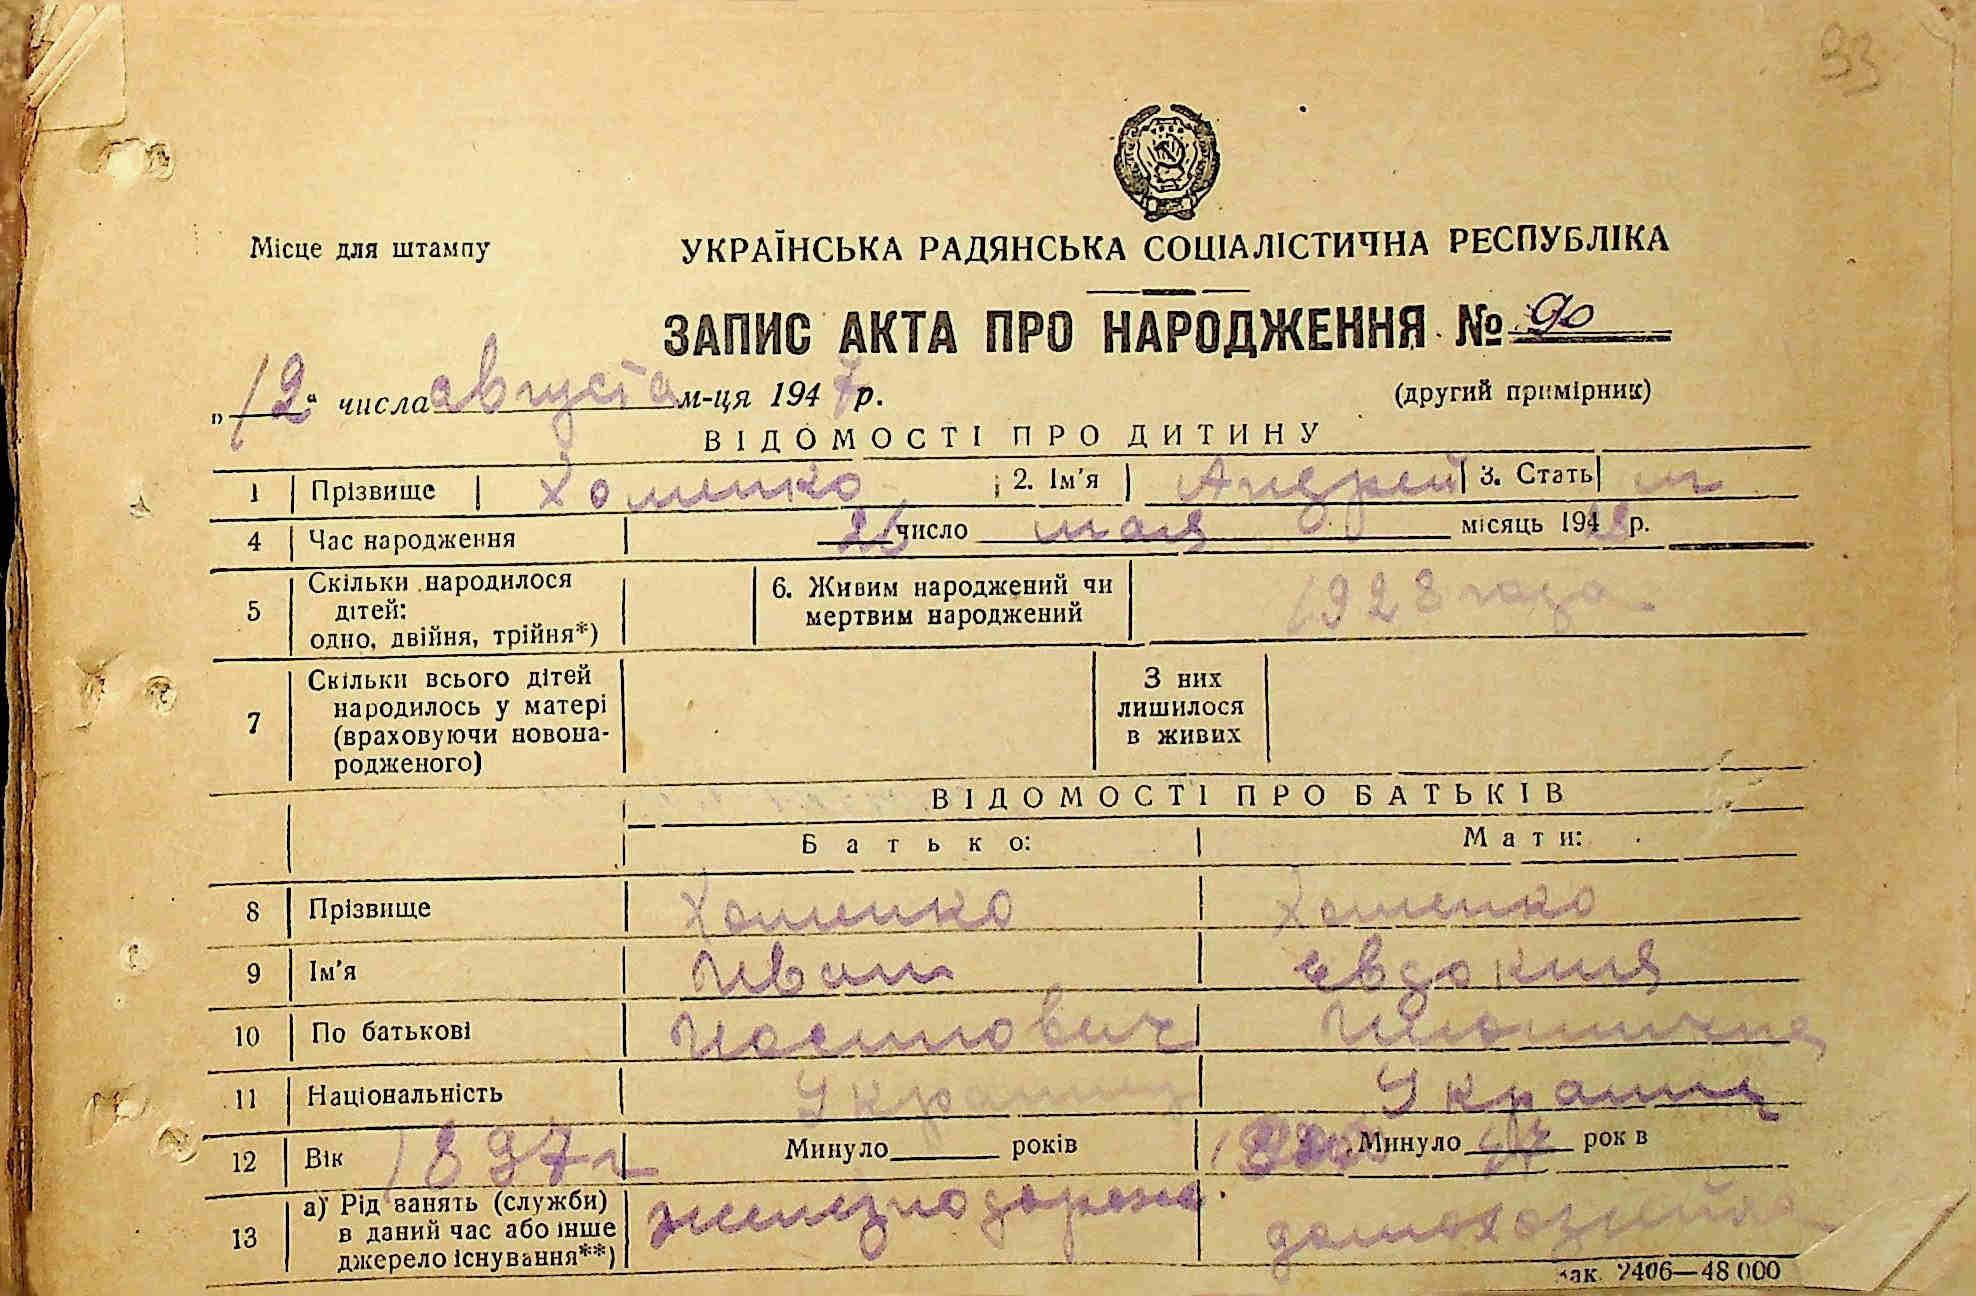 93
Місце для штампу
УКРАЇНСЬКА РАДЯНСЬКА СОЦІАЛІСТИЧНА РЕСПУБЛІКА
ЗАПИС АКТА ПРО НАРОДЖЕННЯ № 90
„12“ числа августа м-ця 1947 р.
(другий примірник)
ВІДОМОСТІ ПРО ДИТИНУ
1 Прізвище Хоменко 2. Ім'я Андрей 3. Стать м
4 Час народження 26 число мая місяць 1942 р.
5 Скільки народилося дітей: одно, двійня, трійня*) 6. Живим народжений чи мертвим народжений 1928 года
7 Скільки всього дітей народилось у матері (враховуючи новона-родженого) З них лишилося в живих
ВІДОМОСТІ ПРО БАТЬКІВ
Батько: Мати:
8 Прізвище Хоменко Хоменко
9 Ім'я Иван Евдокия
10 По батькові Иосипович
11 Національність Украинец Украинц
12 Вік 1897 г Минуло рокiв Минуло 47 рок в
13 а) Рід занять (служби) в даний час або інше джерело існування**) железнодорожн домохозяйка
зак. 2406—48 000